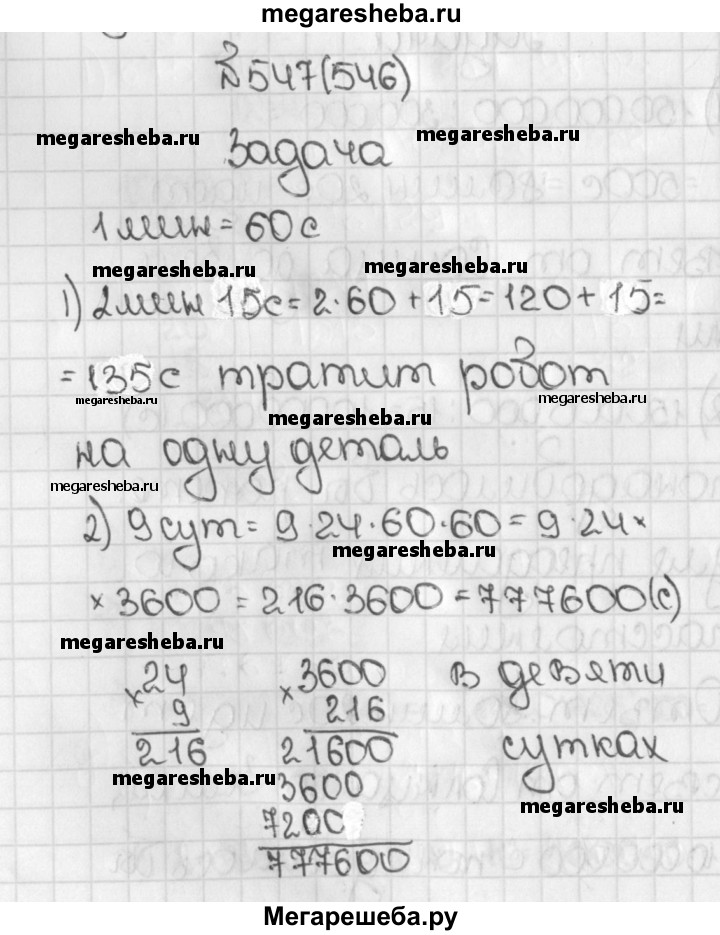 megaresheba.ru
№547(546)
megaresheba.ru megaresheba.ru
Задача
1мин=60с
megaresheba.ru megaresheba.ru
1) 2мин 15с=2·60+15=120+15=
=135с тратит робот
megaresheba.ru megaresheba.ru
megaresheba.ru
на одну деталь
megaresheba.ru
2) 9сут=9·24·60·60=9·24×
megaresheba.ru
×3600=216·3600=777600(с)
megaresheba.ru
×24 ×3600 в девяти
9 216
216 21600 сутках
megaresheba.ru 3600 megaresheba.ru
7200
777600
Мегарешеба.ру